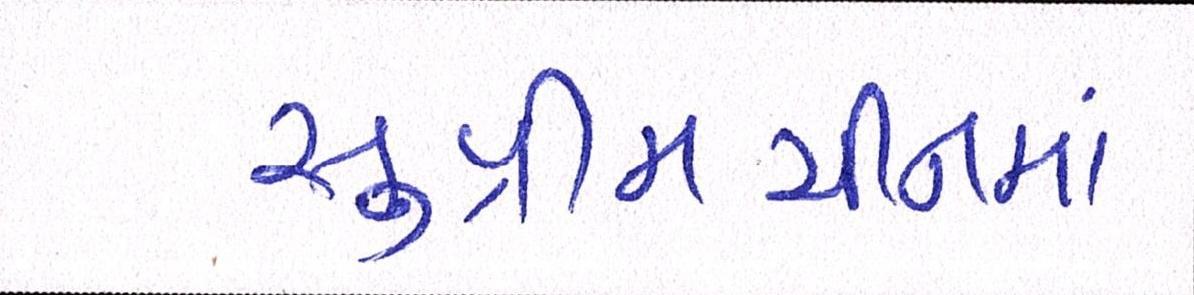 સુપ્રીમ ચીનમાં